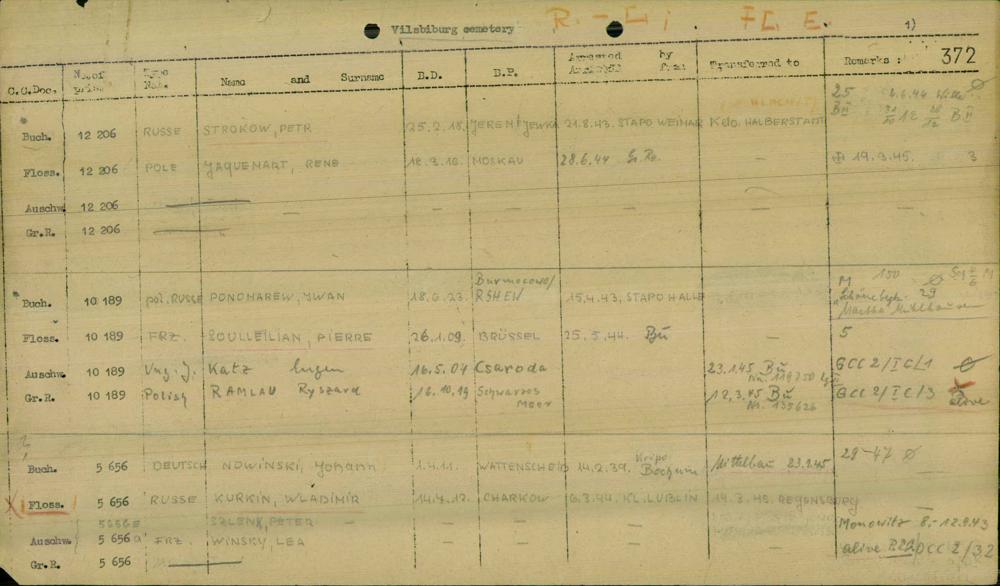 Vilsbiburg cemetery 1)
C.C.Doc. No. of Name and Surname B.D. B.P. Arrested by Transferred to Remarks : 372
Buch. 12 206 RUSSE STROKOW, PETR 25.2.18. 21.8.43. STAPO WEIMAR Kdo. HALBERSTADT 25
Floss. 12 206 POLE JAQUEMART, RENE 18.3.10. MOSKAU 28.6.44 Gr. Ro. — 19.3.45. 3
Auschw. 12 206 — — — —
Gr.R. 12 206
Buch. 10 189 pol. RUSSE PONOMAREW, IWAN 18.6.23. RSHEW 15.4.43, STAPO HALLE M 150
Floss. 10 189 FRZ. SOULLEILIAN, PIERRE 26.1.09. BRÜSSEL 25.5.44. Bu — 5
Auschw. 10 189 Ung. J. Katz Eugen 16.5.04 Csaroda 23.1.45 Bu GCC 2/IC/1
Gr.R. 10 189 Polish RAMLAU Ryszard 16.10.19 Schwarzes Meer 12.3.45 Bu Nr. 135626 GCC 2/IC/3 alive
Buch. 5 656 DEUTSCH NOWINSKI, Johann 1.4.11. WATTENSCHEID 14.2.39. Kripo Bochum Mittelbau 23.1.45 28-47
Floss. 5 656 RUSSE KURKIN, WLADIMIR 14.4.12. CHARKOW 6.3.44. KL. LUBLIN 14.3.45. Regensburg —
5656 SZLENK, PETER — — — — Monowitz 8.-12.9.43
Auschw. 5 656 FRZ. WINSKY, LEA — — — — alive OCC 2/32
Gr.R. 5 656